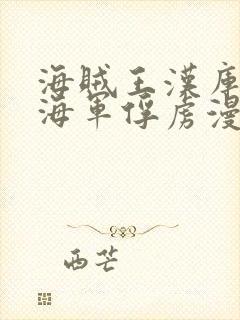 海贼王漢庫
海軍俘虏漫
西芒